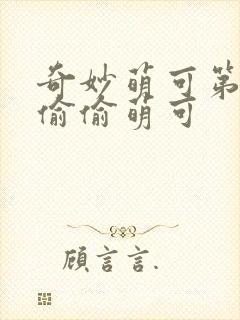 奇妙萌可第
偷偷萌可
顾言言.